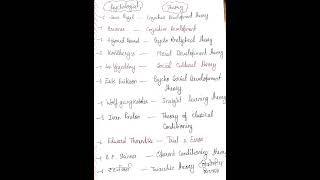 Psychologist Theory
→ Jean Piaget - Cognitive Development Theory
→ Bruner - Cognitive Development
→ Sigmund Freud - Psycho Analytical Theory
→ Kohlberg - Moral Development Theory
→ Vygotsky - Social Cultural Theory
→ Erik Erikson - Psycho Social Development Theory
→ Wolfgang Kohler - Insight learning Theory
→ Ivan Pavlov - Theory of Classical Conditioning
→ Edward Thorndike - Trial & Error
→ B.F. Skinner - Operant Conditioning Theory
→ Two factor Theory